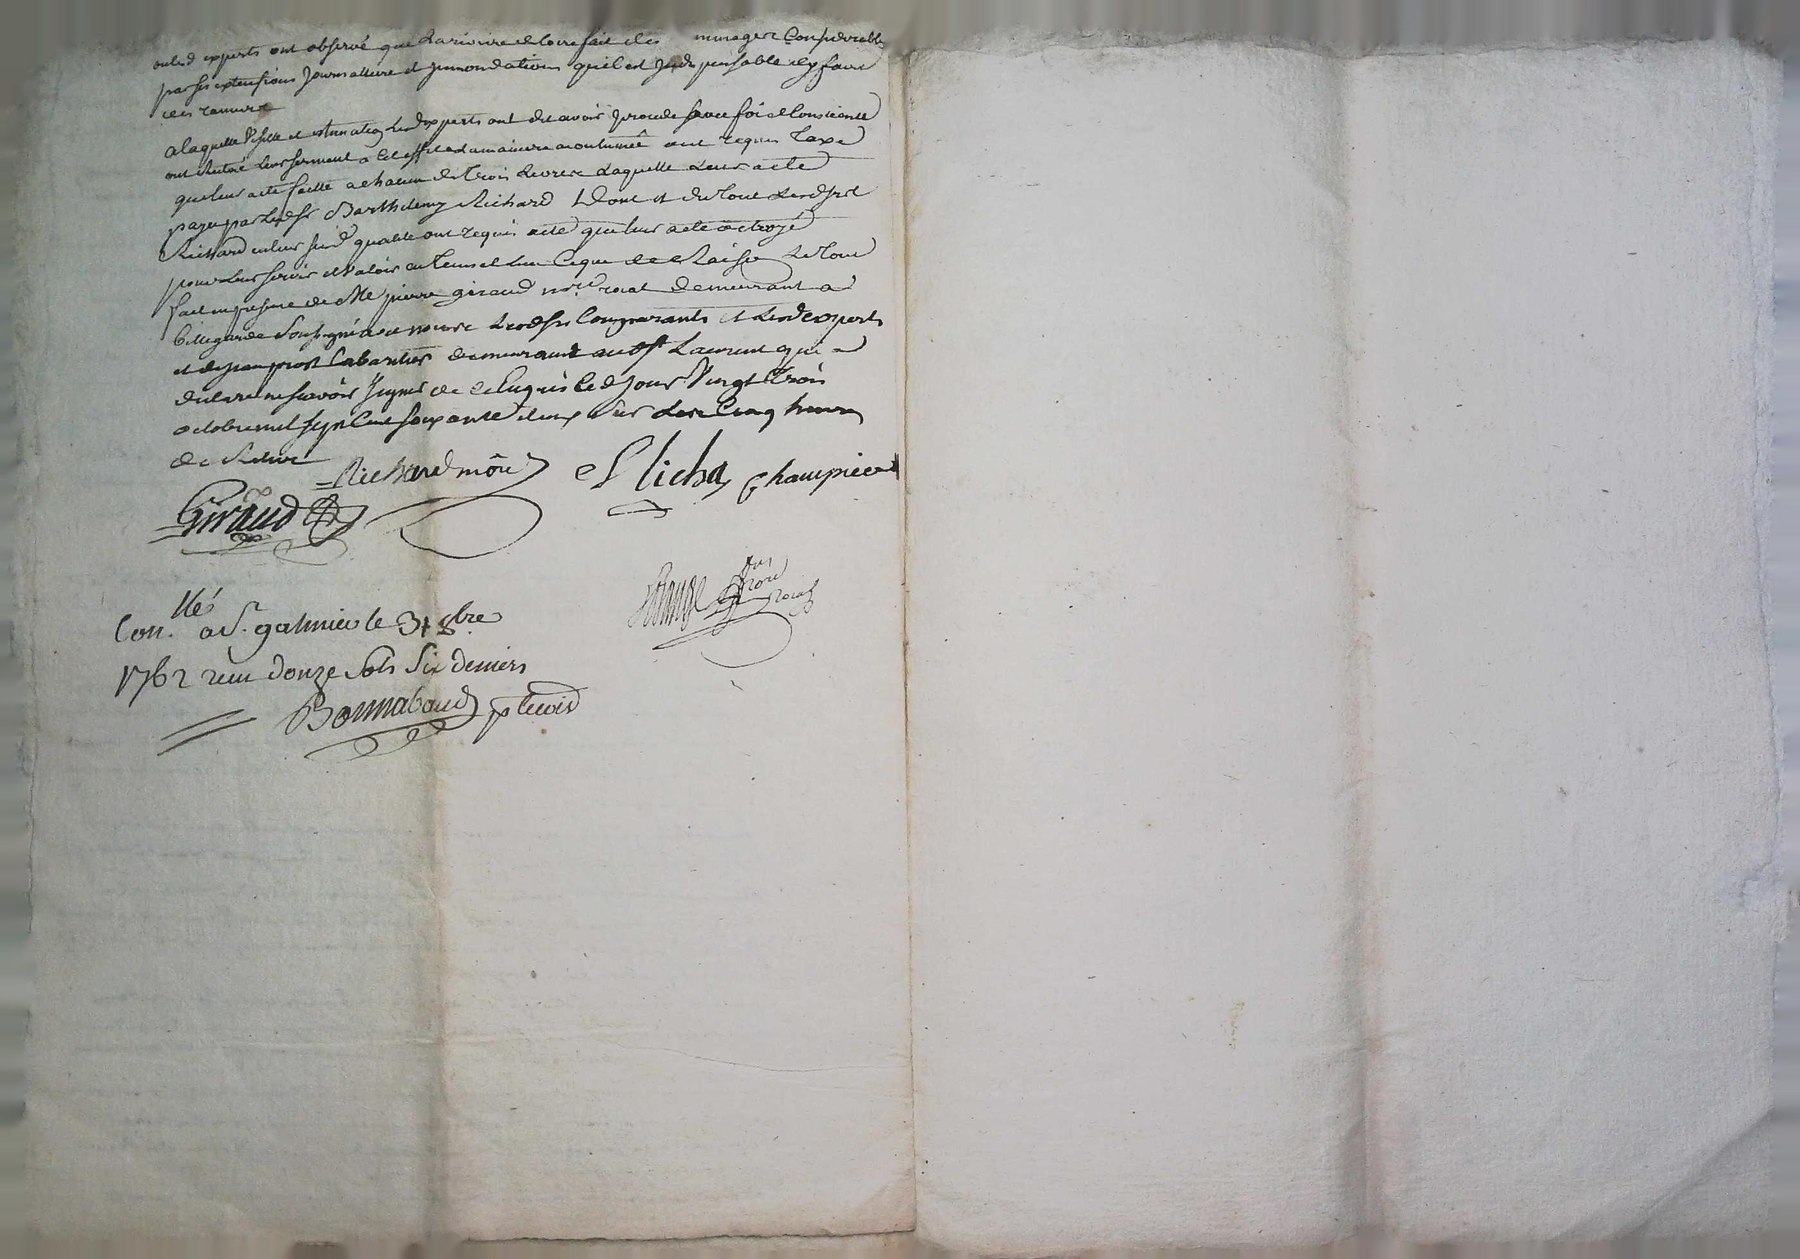 experts ont observé que la riviere de loire fait des considerables
par ses extensions journallieres et jnnondations quil est jndispensable dy faire
des
a laquelle visitte et estimation lesd experts ont dit avoir procedé foi et Conscience
ont leur serment a cet effet a la maniere acoutumée ont requis Taxe
que leur acte faitte a chacun de Trois Livres laquelle Leur acte
payer par led sr Barthelemy Richard Dont et du Tout lesd srs
Richard qualité ont requis acte que leur acte octroyé
pour leur servir et valoir en Tems et lieu Ceque de Raison Le Tout
fait en presence de Me pierre giraud nore roial demeurant a
Bellegarde Soussigné avec nous lesd srs Comparants et lesd experts
et de jean Cabaretier demeurant aud st Laurent qui a
declaré ne sçavoir signer de ce Enquis led jour Vingt Trois
octobre mil sept Cent soixante deux sur Les Cinq heures
de
Richard
Giraud
Con.llé a St. galmier le 31 8bre
1762 reçu douze sols Six deniers
Bonnabaud